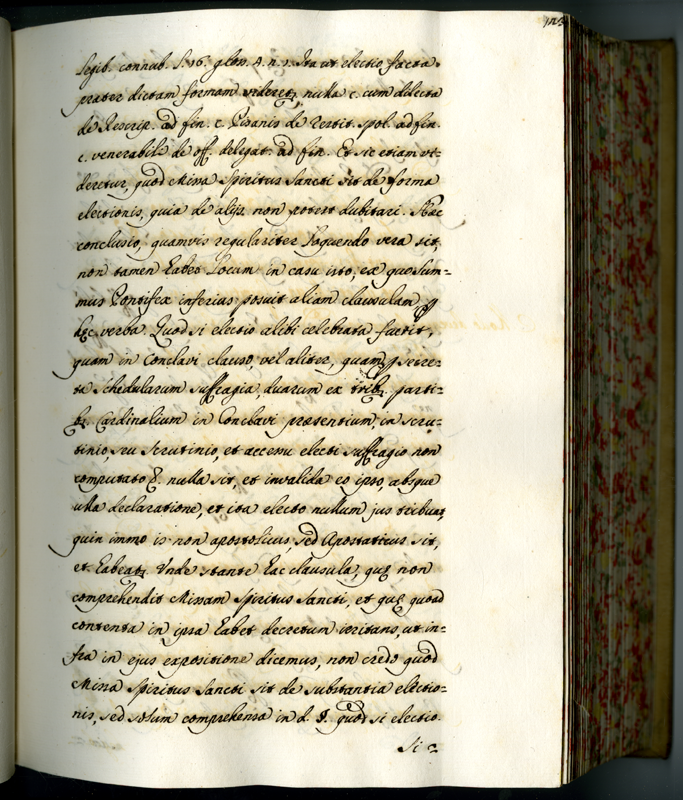 legib. connub. l. 16. glos. 4. n. 1. Ita ut electio facta
præter dictam formam videretʒ nulla c. cum dilecta
de Rescrip. ad fin. c. Pisanis de restit. spol. ad fin.
c. venerabili de off. delegat. ad fin. Et sic etiam vi=
deretur, quod Missa Spiritus Sancti sit de forma
electionis, quia de alijs non potest dubitari. Hæc
conclusio, quamvis regulariter loquendo vera sit,
non tamen habet locum in casu isto, ex quo Sum=
mus Pontifex inferius posuit aliam clausulam ꝑ
hęc verba. Quod si electio alibi celebrata fuerit,
quam in Conclavi clauso, vel aliter, quam ꝑ secre=
ta schedularum suffragia, duarum ex tribʒ parti=
bʒ Cardinalium in Conclavi præsentium, in scru=
tinio, seu scrutinio, et accessu electi suffragio non
computato &. nulla sit, et invalida eo ipso, absque
ulla declaratione, et ita electo nullum jus tribuat,
quin immo is non apostolicus, sed Apostaticus sit,
et habeatʒ. Unde stante hac clausula, quę non
comprehendit Missam Spiritus Sancti, et quę quoad
contenta in ipsa habet decretum irritans, ut in=
fra in ejus expositione dicemus, non credo quod
Missa Spiritus Sancti sit de substantia electio=
nis, sed solum comprehensa in d. §. quod si electio.
Si =